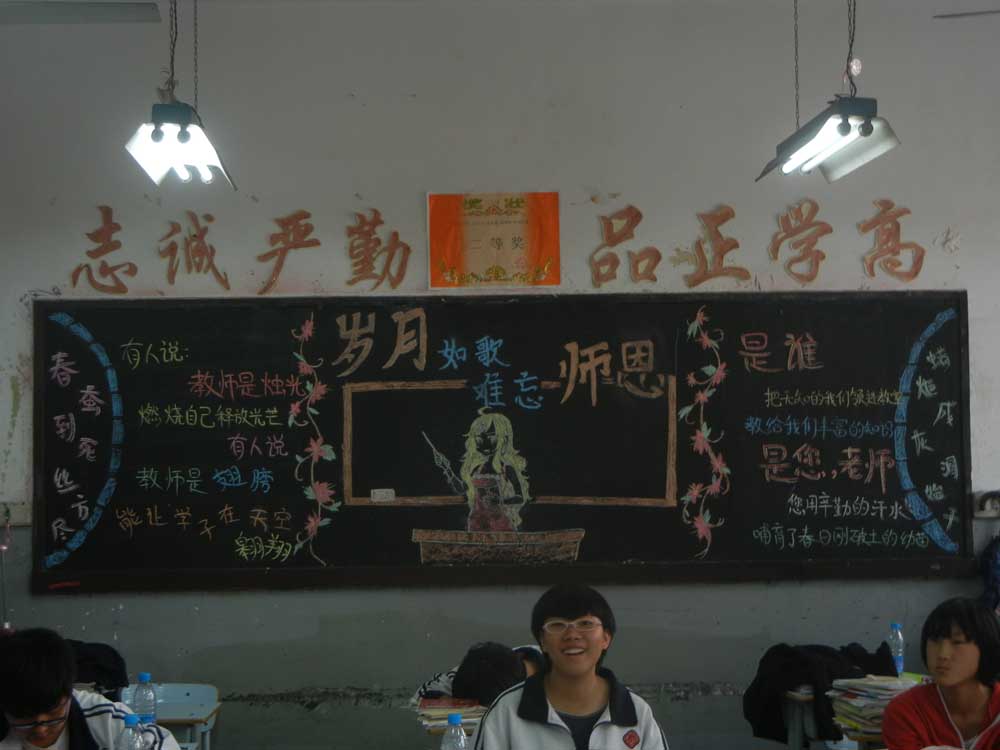 志诚严勤
奖状
二等奖
品正学高
岁月如歌
难忘师恩
春蚕到死丝方尽
有人说:
教师是烛光
燃烧自己释放光芒
有人说
教师是翅膀
能让学子在天空
翱翔
是谁
把无知的我们领进教室
教给我们丰富的知识
是您,老师
您用辛勤的汗水
哺育了春日刚破土的幼苗
蜡炬成灰泪始干